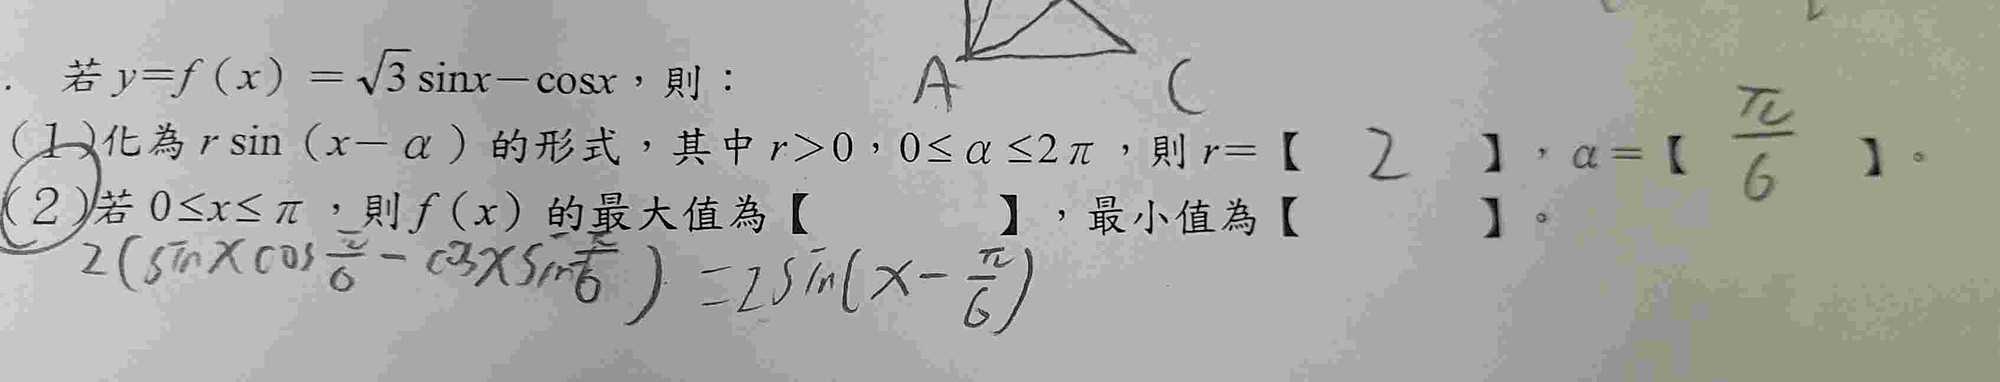 A C
. 若 y=f（x）=√3 sinx−cosx，則：
（1）化為 r sin（x−α）的形式，其中 r>0，0≤α≤2π，則 r=【 2 】，α=【 π/6 】。
（2）若 0≤x≤π，則 f（x）的最大值為【 】，最小值為【 】。
2(sinx cos π/6 − cosx sin π/6) = 2sin(x − π/6)